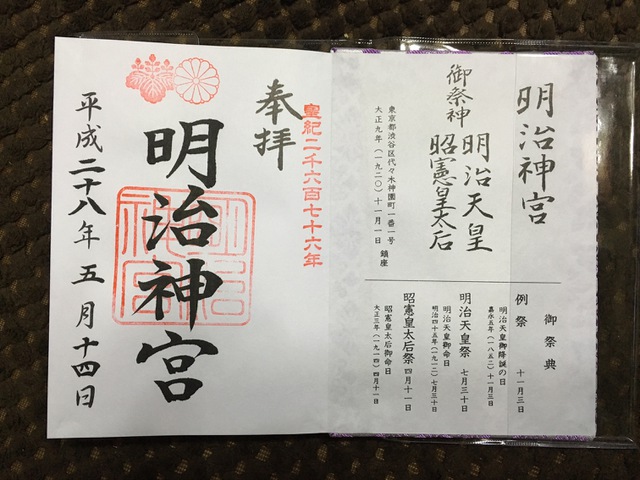 明治神宮
御祭神
明治天皇
昭憲皇太后
東京都渋谷区代々木神園町一番一号
大正九年(一九二〇)十一月一日 鎮座
御祭典
例祭 十一月三日
明治天皇御降誕の日
嘉永五年(一八五二)十一月三日
明治天皇祭 七月三十日
明治天皇御命日
明治四十五年(一九一二)七月三十日
昭憲皇太后祭 四月十一日
昭憲皇太后御命日
大正三年(一九一四)四月十一日
皇紀二千六百七十六年
奉拝
明治神宮
明治神宮
平成二十八年五月十四日